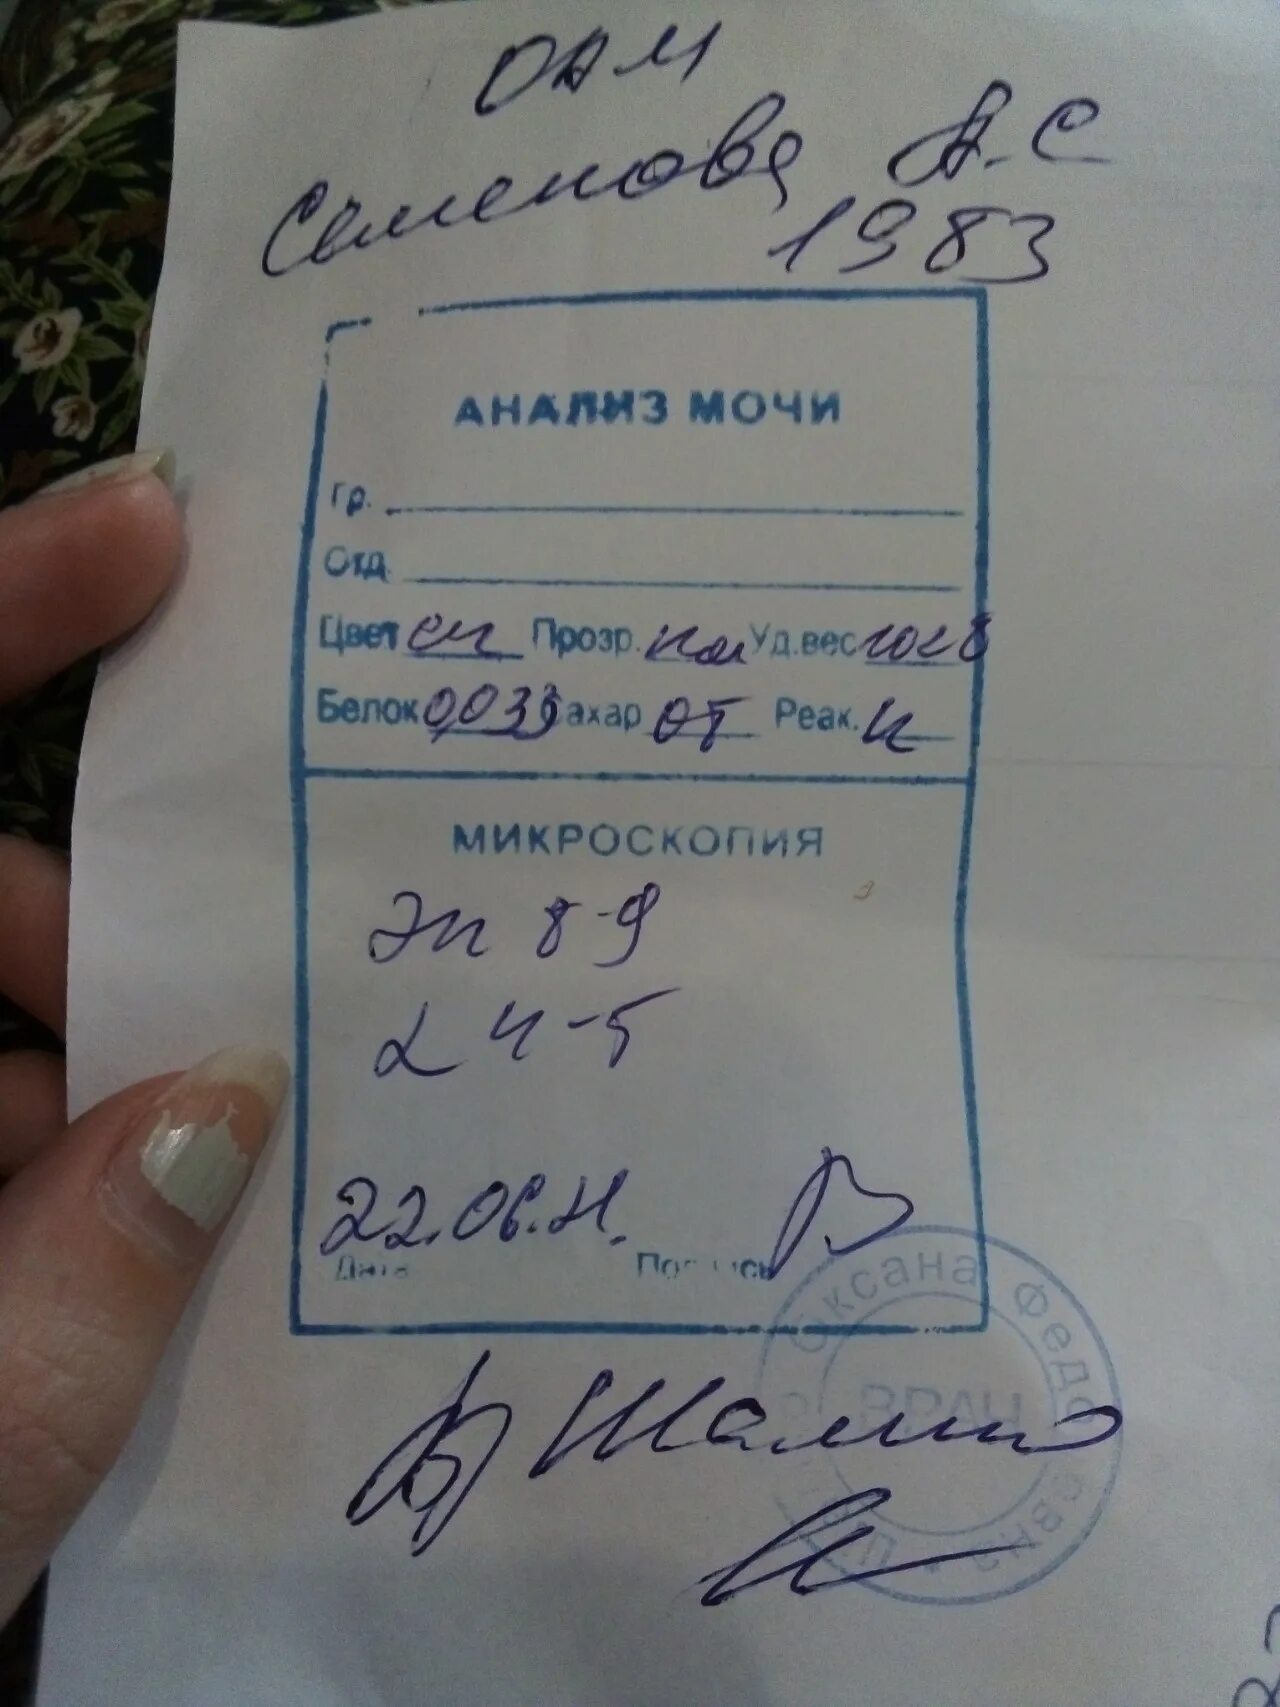 ОАМ
Семенова А.С
1983
АНАЛИЗ МОЧИ
Гр.
Отд.
Цвет сж Прозр. пол Уд.вес 1028
Белок 0,033 Сахар от Реак. к
МИКРОСКОПИЯ
Эп 8-9
L 4-5
22.06.
Дата Подпись
Оксана Федо
ВРАЧ